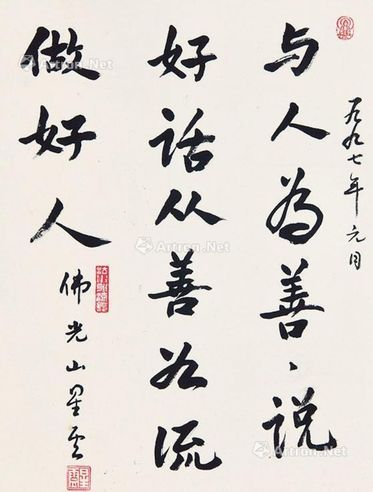 一九九七年元月
与人為善、说
好话从善如流
做好人
佛光山星云
Artron.Net
Artron.Net
Artron.Net
Artron.Net